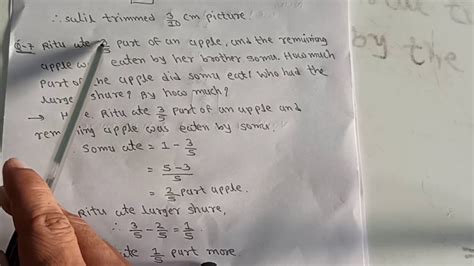 ∴ sulil trimmed 3/10 cm picture.
Q-7 Ritu ate 3/5 part of an apple, and the remaining
apple was eaten by her brother somu. How much
part of the apple did somu eat? who had the
larger share? By how much?
→ Here. Ritu ate 3/5 part of an apple and
remaining apple was eaten by somu.
Somu ate = 1 - 3/5
= 5-3/5
= 2/5 part apple.
Ritu ate larger share,
∴ 3/5 - 2/5 = 1/5
ate 1/5 part more.
by the